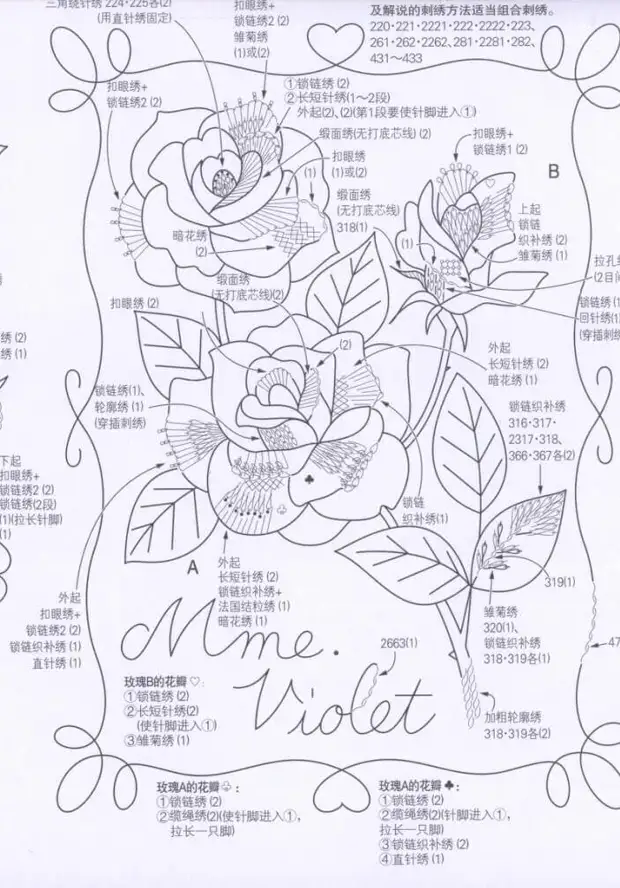 三角绕针绣 224·225各(2)
(用直针绣固定)
扣眼绣+
锁链绣2 (2)
雏菊绣
(1)或(2)
及解说的刺绣方法适当组合刺绣。
220·221·2221·222·2222·223、
261·262·2262、281·2281·282、
431～433
扣眼绣+
锁链绣2 (2)
①锁链绣 (2)
②长短针绣(1～2段)
外起(2)、(2)(第1段要使针脚进入①)
缎面绣(无打底芯线) (2)
扣眼绣
(1)或(2)
(1)
缎面绣
(无打底芯线)
318(1)
暗花绣
(2)
扣眼绣+
锁链绣1 (2)
B
上起
锁链
织补绣 (2)
雏菊绣 (1)
(1)
拉孔
(2目
锁链绣(1
回针绣(1)
(穿插刺绣
缎面绣
(无打底芯线)(2)
扣眼绣 (2)
(2)
外起
长短针绣 (2)
暗花绣 (1)
绣 (2)
绣 (1)
锁链绣(1)、
轮廓绣 (1)
(穿插刺绣)
锁链织补绣
316·317·
2317·318、
366·367各(2)
下起
扣眼绣+
锁链绣2 (2)
锁链绣(2段)
(1)(拉长针脚)
(1)
锁链
织补绣(1)
A
外起
长短针绣 (2)
锁链织补绣+
法国结粒绣 (1)
暗花绣 (1)
319(1)
外起
扣眼绣+
锁链绣2 (2)
锁链织补绣 (1)
直针绣 (1)
雏菊绣
320(1)、
锁链织补绣
318·319各(1)
Mme.
2663(1)
47
Violet
玫瑰B的花瓣♡:
①锁链绣 (2)
②长短针绣(2)
(使针脚进入①)
③雏菊绣 (1)
加粗轮廓绣
318·319各(2)
玫瑰A的花瓣♧:
①锁链绣 (2)
②缆绳绣(2)(使针脚进入①,
拉长一只脚)
玫瑰A的花瓣♣:
①锁链绣 (2)
②缆绳绣 (2)(针脚进入①,
拉长一只脚)
③锁链织补绣 (2)
④直针绣 (1)